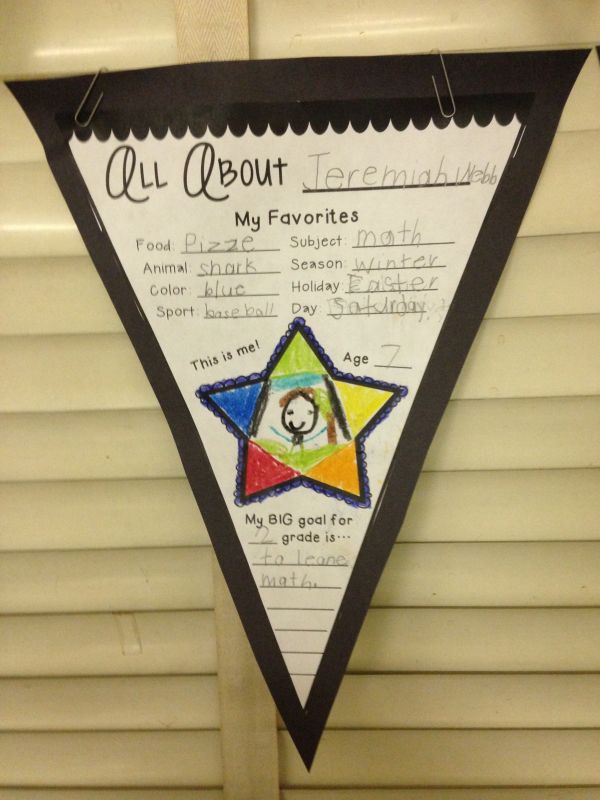 All About Jeremiah Webb
My Favorites
Food: Pizze Subject: math
Animal: shark Season: winter
Color: blue Holiday: Easter
Sport: baseball Day: Saturday
This is me! Age 7
My BIG goal for
2 grade is...
to leane
math.